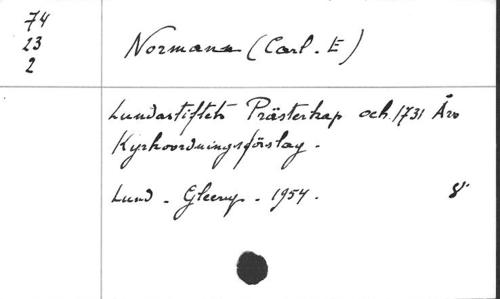 74
23
2
Normann (Carl. E)
Lundastiftets Prästerkap och 1731 Års
Kyrkoordningsförslag.
Lund - Gleerup - 1954. 8°